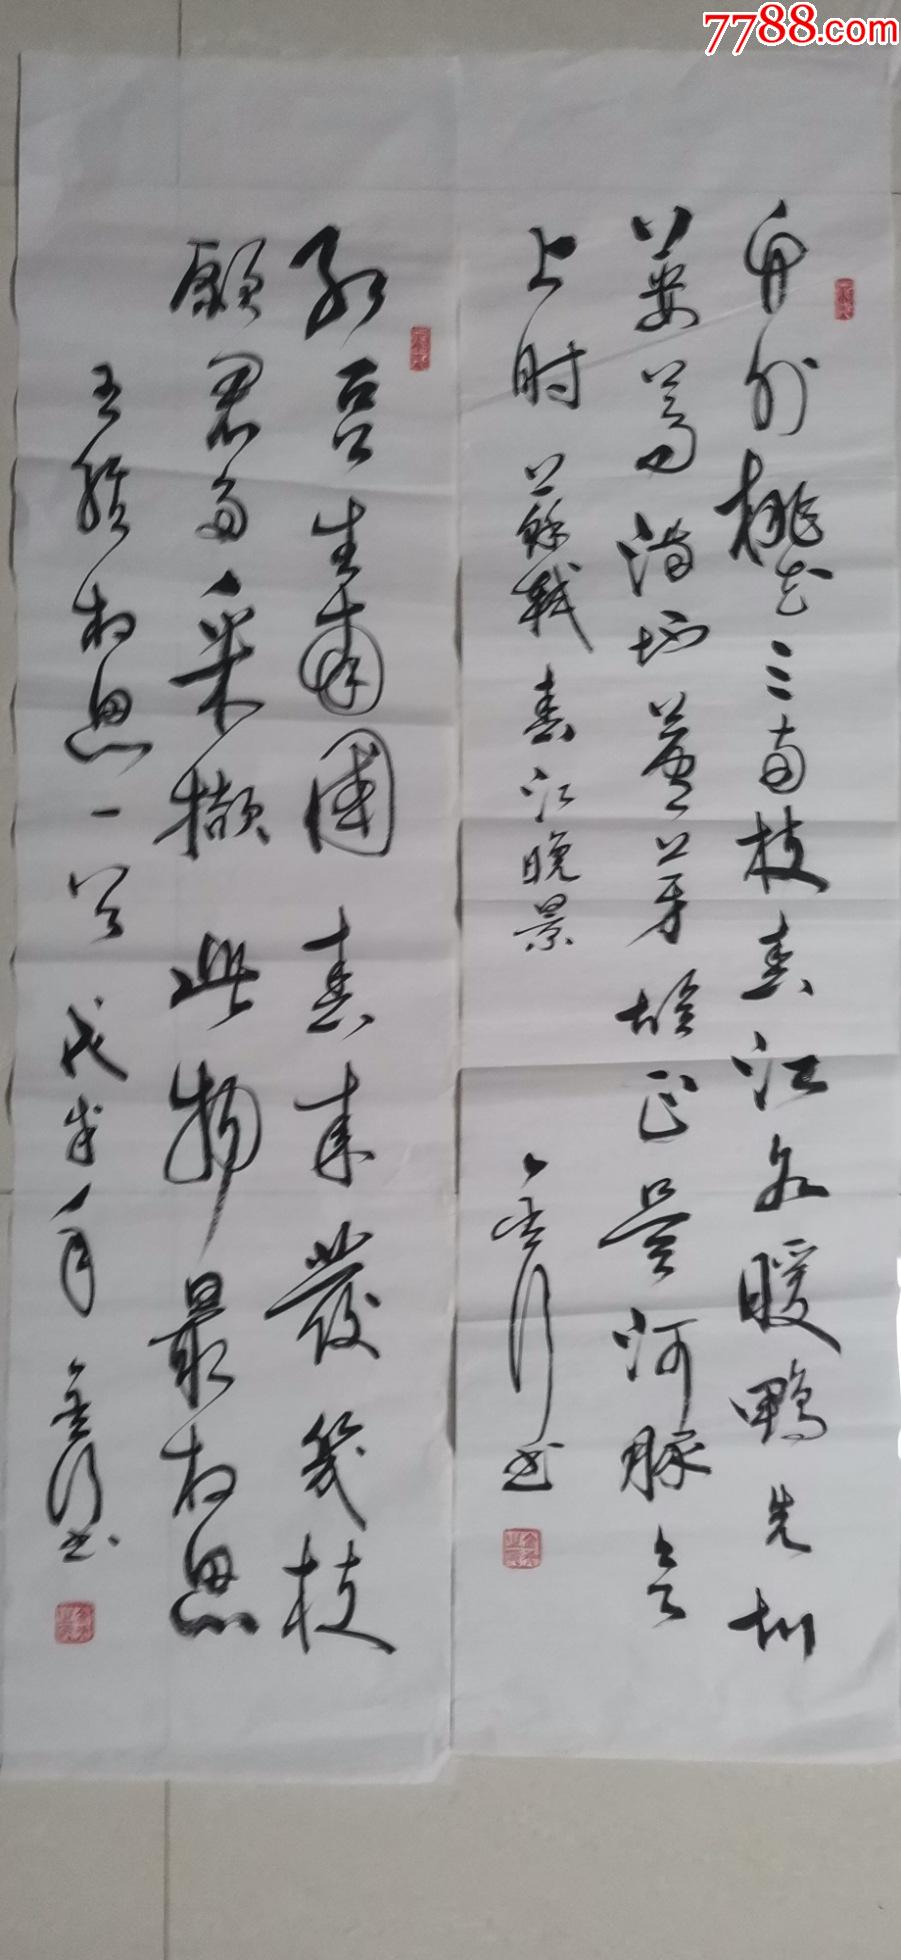 7788.com
竹外桃花三两枝春江水暖鴨先知
蔞蒿滿地蘆芽短正是河豚欲
上时 蘇軾春江晚景
书
红豆生南國春来發幾枝
願君多采擷此物最相思
王維相思一首 戊戌年 书